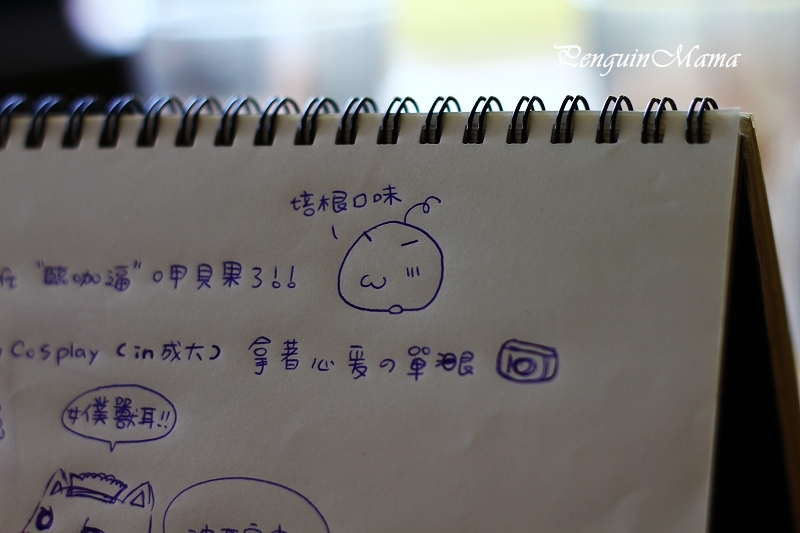 PenguinMama
培根口味
在 "臨咖逼" 呷貝果了!!
Cosplay (in成大) 拿著心愛の單眼
女僕獸耳!!